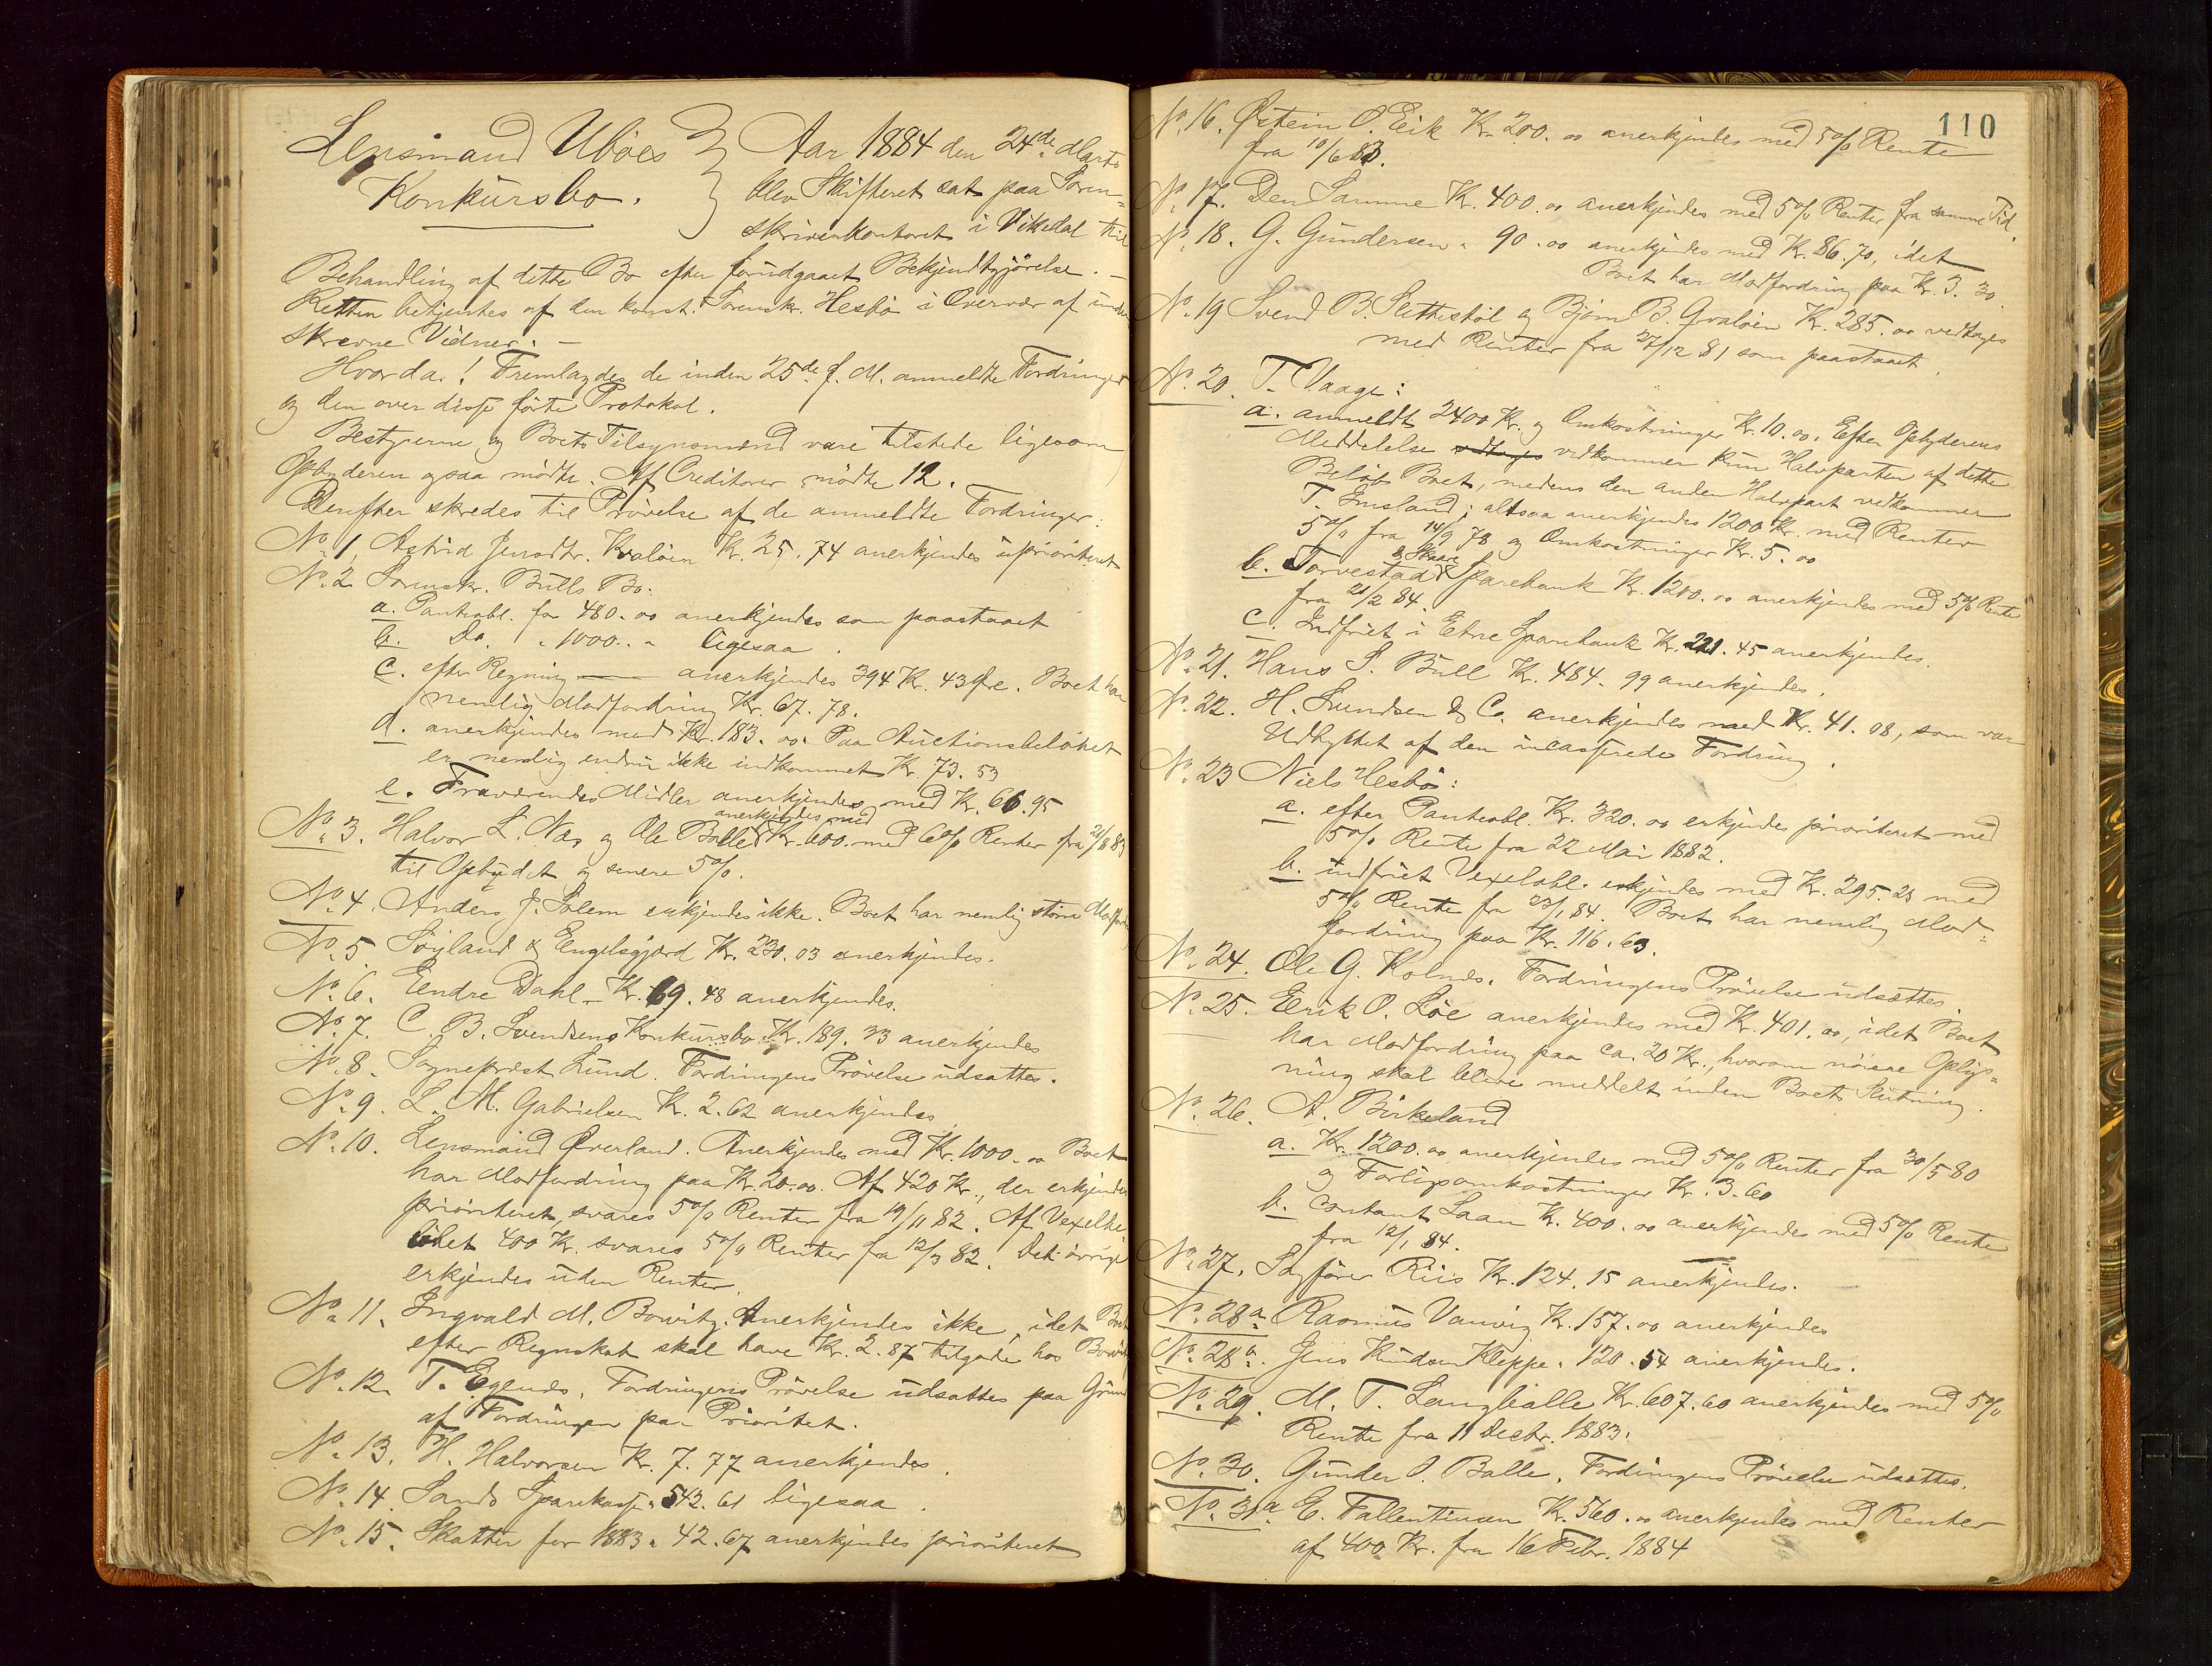 Lensmand Ubøes
Konkursbo.
Aar 1884 den 24de Marts
blev Skifteret sat paa Soren-
skriverkontoret i Vikedal til
Behandling af dette Bo efter forudgaaet Bekjendtgjörelse. —
Retten betjentes af den konst. Sorenskr. Hesbö i Overvær af under
skrevne Vidner. —
Hvorda! Fremlagdes de inden 25de f. M. anmeldte Fordringer
og den over disse förte Protokol.
Bestyrerne og Boets Tilsynsmænd vare tilstede ligesom
Opbyderen ogsaa mödte. Af Creditorer mödte 12.
Derefter skredes til Prövelse af de anmeldte Fordringer:
No. 1. Astrid Jensdtr. Kvaløen Kr. 25.74 anerkjendes uprioriteret
No. 2 Sorenskr. Bulls Bo:
a. Panteobl. for 480.00 anerkjendes som paastaaet
b. Do. " 1000.. " ligesaa.
c. efter Regning — anerkjendes 394 Kr. 43 Øre. Boet har
nemlig Modfordring Kr. 67.78.
d. anerkjendes med Kr. 183.00. Paa Auctionsbelöbet
er nemlig endnu ikke indkommet Kr. 73.53
e. Fraværendes Midler anerkjendes med Kr. 66.95
No. 3. Halvor L. Næs og Ole Balle anerkjendes med Kr. 600. med 6% Renter fra 21/8 83
til Opbudet og senere 5%.
No. 4. Anders J. Solem erkjendes ikke. Boet har nemlig större Modford
No. 5. Söyland & Engelsgjærd Kr. 230.03 anerkjendes.
No. 6. Endre Dahl – Kr. 69.48 anerkjendes.
No. 7. C. B. Svendsens Konkursbo Kr. 189.33 anerkjendes
No. 8. Sogneprest Lund. Fordringens Prövelse udsattes.
No. 9. L. M. Gabrielsen Kr. 2.62 anerkjendes
No. 10. Lensmand Øverland. Anerkjendes med Kr. 1000.00 Boet
har Modfordring paa Kr. 20.00. Af 420 Kr., der erkjendes
prioriteret, svares 5% Renter fra 19/11 82. Af Vexelbe-
löbet 400 Kr. svares 5% Renter fra 12/3 82. Det övrige
erkjendes uden Renter.
No. 11. Ingvald M. Bowitz. Anerkjendes ikke, idet Boet
efter Regnskab skal have Kr. 2.87 tilgode hos Bowitz
No. 12. T. Egenes. Fordringens Prövelse udsattes paa Grund
af Fordringen paa Prioritet.
No. 13. H. Halvorsen Kr. 7.77 anerkjendes.
No. 14. Sands Sparekasse " 543.61 ligesaa.
No. 15. Skatter for 1883 " 42.67 anerkjendes prioriteret
110
No. 16. Östein O. Eik Kr. 200.00 anerkjendes med 5% Rente
fra 10/6 83.
No. 17. Den Samme Kr. 400.00 anerkjendes med 5% Renter fra samme Tid.
No. 18. G. Gundersen " 90.00 anerkjendes med Kr. 86.70, idet
Boet har Modfordring paa Kr. 3.30.
No. 19 Svend B. Slettestöl og Bjørn B. Qvaløen Kr. 285.00 vedtages
med Renter fra 27/12 81 som paastaaet.
No. 20. T. Vaage:
a. anmeldt 2400 Kr. og Omkostninger Kr. 10.00. Efter Opbyderens
Meddelelse vedtages vedkommer kun Halvparten af dette
Belöb Boet, medens den anden Halvpart vedkommer
T. Imsland; altsaa anerkjendes 1200 Kr. med Renter
5% fra 14/9 78 og Omkostninger Kr. 5.00
b. Torvestad & Skaare Sparebank Kr. 1200.00 anerkjendes med 5% Rente
fra 21/2 84.
c. Indfriet i Etne Sparebank Kr. 221.45 anerkjendes.
No. 21. Hans S. Bull Kr. 484.99 anerkjendes.
No. 22. H. Svendsen & Co. anerkjendes med Kr. 41.08, som var
Udbyttet af den incasserede Fordring.
No. 23 Niels Hesbö:
a. efter Panteobl. Kr. 320.00 erkjendes prioriteret med
5% Rente fra 22 Mai 1882.
b. indfriet Vexelobl. erkjendes med Kr. 295.25 med
5% Rente fra 23/1 84. Boet har nemlig Mod-
fordring paa Kr. 116.63.
No. 24. Ole G. Kolnes. Fordringens Prövelse udsattes
No. 25. Eerik O. Löe anerkjendes med Kr. 401.00, idet Boet
har Modfordring paa ca. 20 Kr., hvorom nöiere Oplys-
ning skal blive meddelt inden Boets Slutning.
No. 26. A. Birkeland
a. Kr. 1200.00 anerkjendes med 5% Renter fra 30/5 80
og Forligsomkostninger Kr. 3.60
b. contant Laan Kr. 400.00 anerkjendes med 5% Rente
fra 12/1 84.
No. 27. Sagförer Riis Kr. 124.15 anerkjendes.
No. 28a Rasmus Vanvig Kr. 157.00 anerkjendes
No. 28a. Jens Knudsen Kleppe " 120.54 anerkjendes.
No. 29. M. T. Langballe Kr. 607.60 anerkjendes med 5%
Rente fra 11 Decbr. 1883.
No. 30. Gunder O. Balle. Fordringens Prövelse udsattes.
No. 31a E. Fallentinsen Kr. 560.00 anerkjendes med Renter
af 400 Kr. fra 16 Febr. 1884